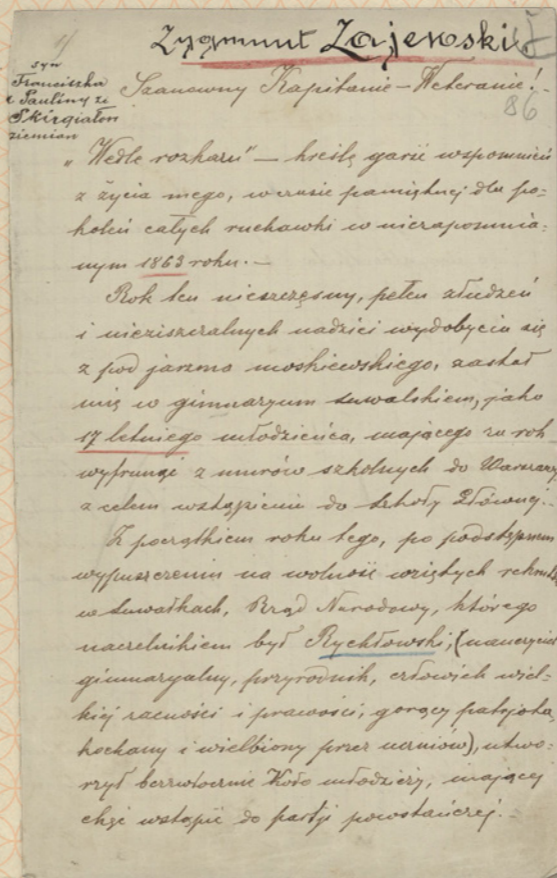 1/
Zygmunt Zajewski
syn
Franciszka
i Pauliny ze
Skirgiałłów
ziemian
Szanowny Kapitanie – Weteranie! –
86
„Wedle rozkazu" – kreślę garść wspomnień
z życia mego, w czasie pamiętnej dla po-
koleń całych ruchawki w niezapomnia-
nym 1863 roku. –
Rok ten nieszczęsny, pełen złudzeń
i nieziszczalnych nadziei wydobycia się
z pod jarzma moskiewskiego, zastał
mię w gimnazyum suwalskiem, jako
17 letniego młodzieńca, mającego za rok
wyfrunąć z murów szkolnych do Warszawy
z celem wstąpienia do Szkoły Głównej. –
Z początkiem roku tego, po podstępnem
wypuszczeniu na wolność wziętych rekrutów
w Suwałkach, Rząd Narodowy, którego
naczelnikiem był Rychłowski, (nauczyciel
gimnazyalny, przyrodnik, człowiek wiel-
kiej zacności i prawości, gorący patryota,
kochany i wielbiony przez uczniów), utwo-
rzył bezzwłocznie Koło młodzieży, mającej
chęć wstąpić do partji powstańczej. –